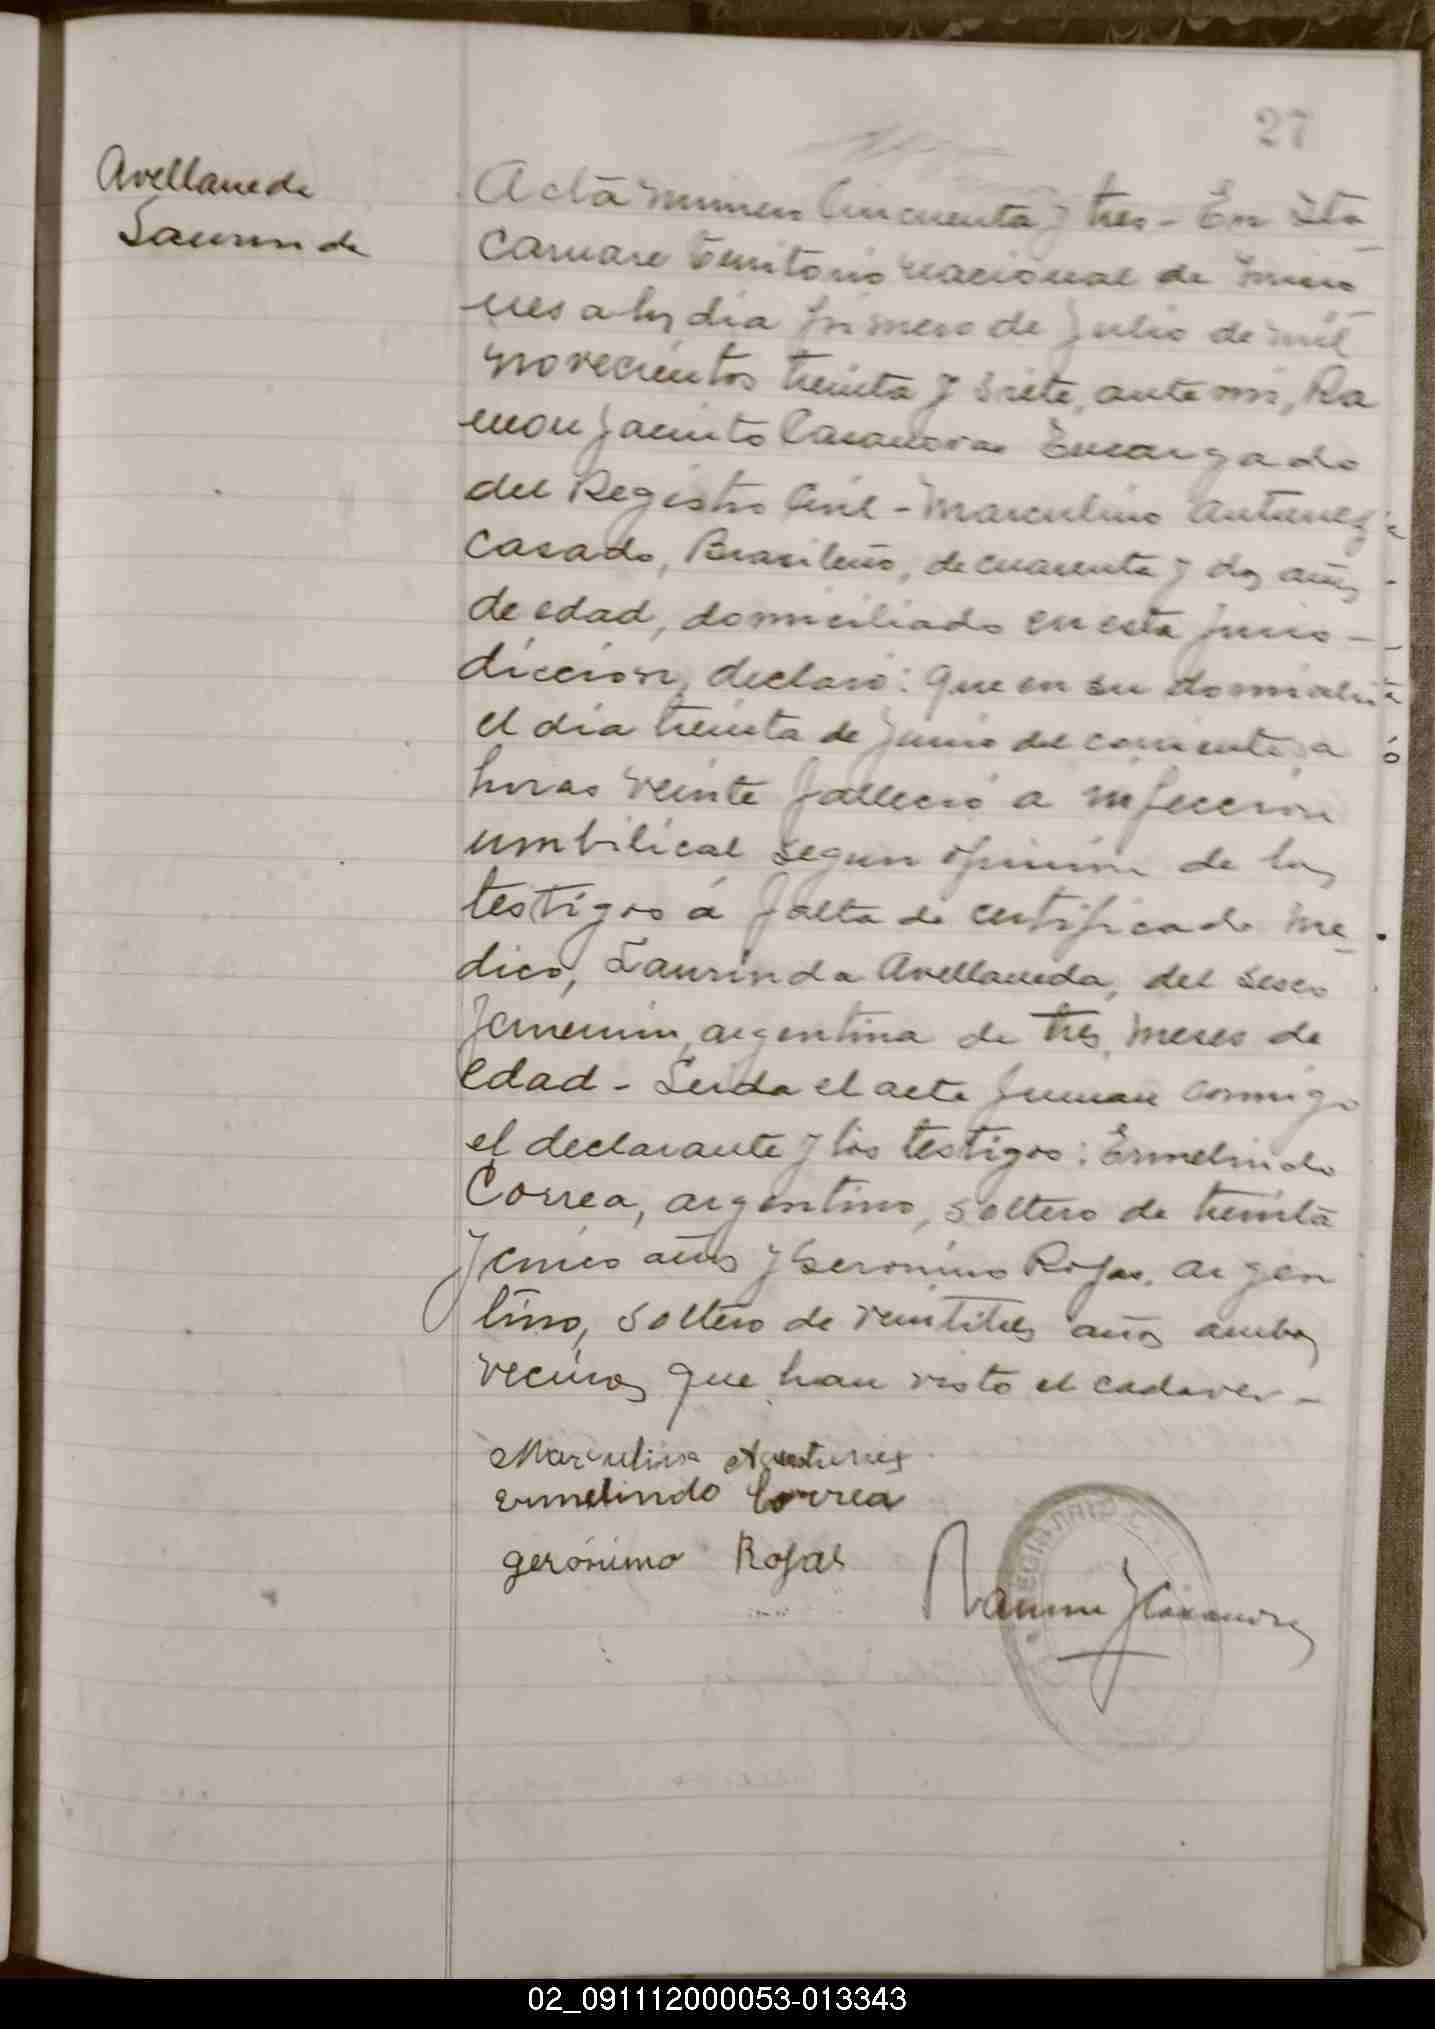 27
Avellaneda
Laurinda
Acta numero Cincuenta y tres - En Ita
Caruare Territorio nacional de Misio
nes a los dia primero de Julio de mil
novecientos treinta y siete, ante mi, Ra
mon Jacinto Casanovas Encargado
del Registro Civil - Marculino Antunez
Casado, Brasileño, de cuarenta y dos años
de edad, domiciliado en esta juris-
diccion, declaró: Que en su domicilio
el dia treinta de Junio del corriente a
horas veinte falleció a infeccion
umbilical segun opinion de los
testigos á falta de certificado me
dico, Laurinda Avellaneda, del sexo
femenin, argentina de tres meses de
edad - Leida el acta firman conmigo
el declarante y los testigos: Ermelindo
Correa, argentino, soltero de treinta
y cinco años y Geronimo Rojas, argen
tino, soltero de veintitres años ambos
vecinos que han visto el cadaver -
Marculino Antunez
Ermelindo Correa
gerónimo Rojas
Ramon J Casanovas
02_091112000053-013343